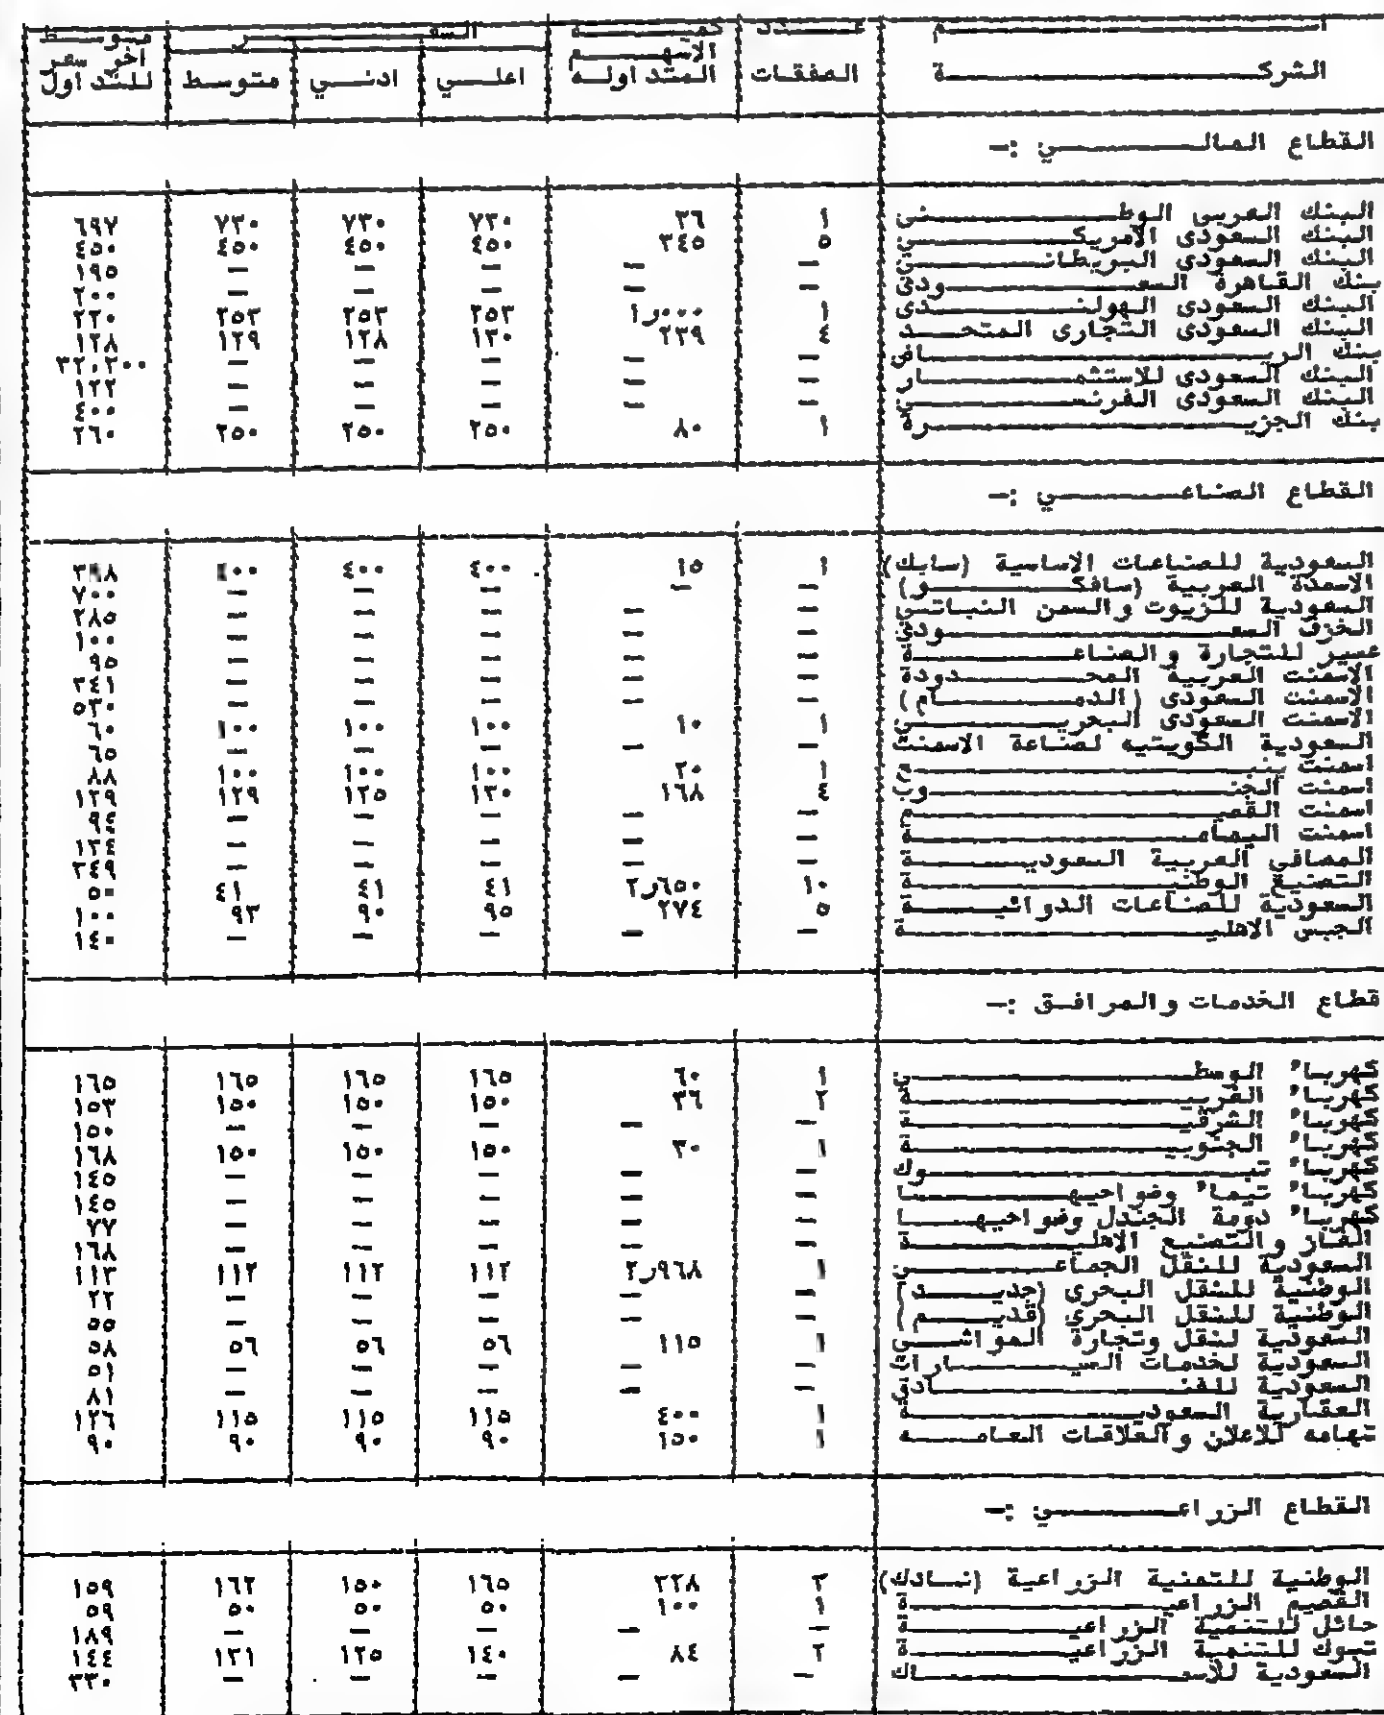 اســـم الشركـــة | عـــدد الصفقات | كميـــة الأسهـــم المتداوله | السعـــر اعلــي | ادنــي | متوسط | متوسـط اخر سعر للتداول
القطاع المالـــي :-
البنك العربى الوطـــنى | ١ | ٢٦ | ٧٣٠ | ٧٣٠ | ٧٣٠ | ٦٩٧
البنك السعودى الأمريكـــى | ٥ | ٣٤٥ | ٤٥٠ | ٤٥٠ | ٤٥٠ | ٤٥٠
البنك السعودى البريطانـــى | — | — | — | — | — | ١٩٥
بنك القاهرة السعـــودى | — | — | — | — | — | ٢٠٠
البنك السعودى الهولنـــدى | ١ | ١ر٠٠٠ | ٢٥٣ | ٢٥٣ | ٢٥٣ | ٢٢٠
البنك السعودى التجارى المتحـــد | ٤ | ٢٣٩ | ١٣٠ | ١٢٨ | ١٢٩ | ١٢٨
بنك الريـــاض | — | — | — | — | — | ٣٢,٢٠٠
البنك السعودى للاستثمـــار | — | — | — | — | — | ١٢٢
البنك السعودى الفرنســـى | — | — | — | — | — | ٤٠٠
بنك الجزيـــرة | ١ | ٨٠ | ٢٥٠ | ٢٥٠ | ٢٥٠ | ٢٦٠
القطاع الصناعـــي :-
السعودية للصناعات الاساسية (سابك) | ١ | ١٥ | ٤٠٠ | ٤٠٠ | ٤٠٠
الاسمدة العربية (سافكـــو) | — | — | — | — | — | ٧٠٠
السعودية للزيوت والسمن النباتــى | — | — | — | — | — | ٢٨٥
الخزف السعـــودى | — | — | — | — | — | ١٠٠
عسير للتجارة والصناعـــة | — | — | — | — | — | ٩٥
الأسمنت العربية المحـــدودة | — | — | — | — | — | ٣٤١
الأسمنت السعودى (الدمـــام) | — | — | — | — | — | ٥٣٠
الأسمنت السعودى البحريـــنى | ١ | ١٠ | ١٠٠ | ١٠٠ | ١٠٠ | ٦٠
السعودية الكويتيه لصناعة الاسمنت | — | — | — | — | — | ٦٥
اسمنت ينبـــع | ١ | ٢٠ | ١٠٠ | ١٠٠ | ١٠٠ | ٨٨
اسمنت الجنـــوب | ٤ | ١٦٨ | ١٣٠ | ١٢٥ | ١٢٩ | ١٢٩
اسمنت القصيـــم | — | — | — | — | — | ٩٤
اسمنت اليمامـــة | — | — | — | — | — | ١٣٤
المصافى العربية السعوديـــة | — | — | — | — | — | ٣٤٩
التصنيع الوطنيـــة | ١٠ | ٢ر٦٥٠ | ٤١ | ٤١ | ٤١ | ٥٠
السعودية للصناعات الدوائيـــة | ٥ | ٢٧٤ | ٩٥ | ٩٠ | ٩٣ | ١٠٠
الجبس الاهليـــة | — | — | — | — | — | ١٤٠
قطاع الخدمات والمرافــق :-
كهرباء الوسطـــى | ١ | ٦٠ | ١٦٥ | ١٦٥ | ١٦٥ | ١٦٥
كهرباء الغربيـــة | ٢ | ٣٦ | ١٥٠ | ١٥٠ | ١٥٠ | ١٥٣
كهرباء الشرقيـــة | — | — | — | — | — | ١٥٠
كهرباء الجنوبيـــة | ١ | ٣٠ | ١٥٠ | ١٥٠ | ١٥٠ | ١٦٨
كهرباء تبـــوك | — | — | — | — | — | ١٤٥
كهرباء تيماء وضواحيهـــا | — | — | — | — | — | ١٤٥
كهرباء دومة الجندل وضواحيهـــا | — | — | — | — | — | ٧٧
الغاز والتصنيع الاهليـــة | — | — | — | — | — | ١٦٨
السعودية للنقل الجماعـــى | ١ | ٢ر٩٦٨ | ١١٢ | ١١٢ | ١١٢ | ١١٣
الوطنية للنقل البحري (جديـــد) | — | — | — | — | — | ٢٢
الوطنية للنقل البحري (قديـــم) | — | — | — | — | — | ٥٥
السعودية لنقل وتجارة المواشــى | ١ | ١١٥ | ٥٦ | ٥٦ | ٥٦ | ٥٨
السعودية لخدمات السيـــارات | — | — | — | — | — | ٥١
السعودية للفنـــادق | — | — | — | — | — | ٨١
العقارية السعوديـــة | ١ | ٤٠٠ | ١١٥ | ١١٥ | ١١٥ | ١٢٦
تهامه للاعلان والعلاقات العامـــه | ١ | ١٥٠ | ٩٠ | ٩٠ | ٩٠ | ٩٠
القطاع الزراعـــي :-
الوطنية للتمنية الزراعية (نـادك) | ٣ | ٢٢٨ | ١٦٥ | ١٥٠ | ١٦٢ | ١٥٩
القصيم الزراعيـــة | ١ | ١٠٠ | ٥٠ | ٥٠ | ٥٠ | ٥٩
حائل للتنمية الزراعيـــة | — | — | — | — | — | ١٨٩
تبوك للتنمية الزراعيـــة | ٢ | ٨٤ | ١٤٠ | ١٢٥ | ١٣١ | ١٤٤
السعودية للأسمـــاك | — | — | — | — | — | ٣٣٠